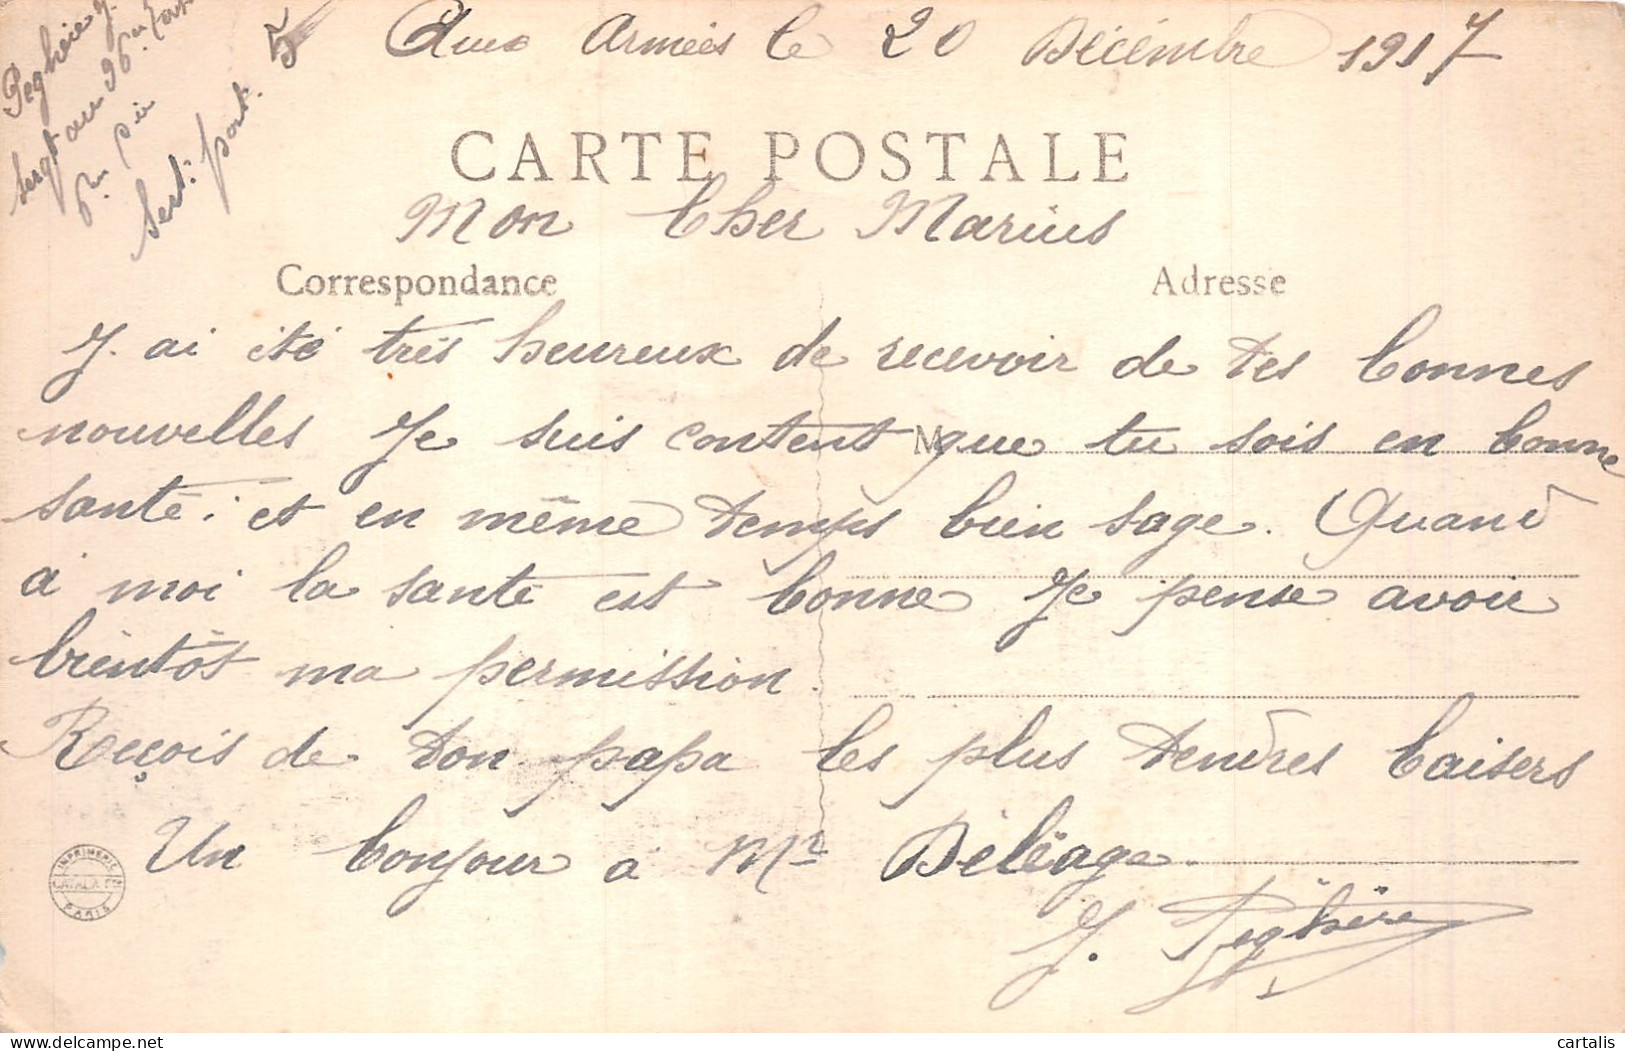 Peghère J.
sergt au 96e
6me pie
Sect: post. 5
Aux Armées le 20 Décembre 1917
CARTE POSTALE
Mon Cher Marius
Correspondance
Adresse
J. ai été très heureux de recevoir de tes bonnes
nouvelles Je suis content que tu sois en bonne
M
santé. et en même temps bien sage. Quand
à moi la santé est bonne Je pense avoir
bientôt ma permission.
Reçois de ton papa les plus tendres baisers
Un bonjour à Mr Deléage.
J. Peghère
IMPRIMERIE
CATALA Fres
PARIS
cartalis | delcampe.net